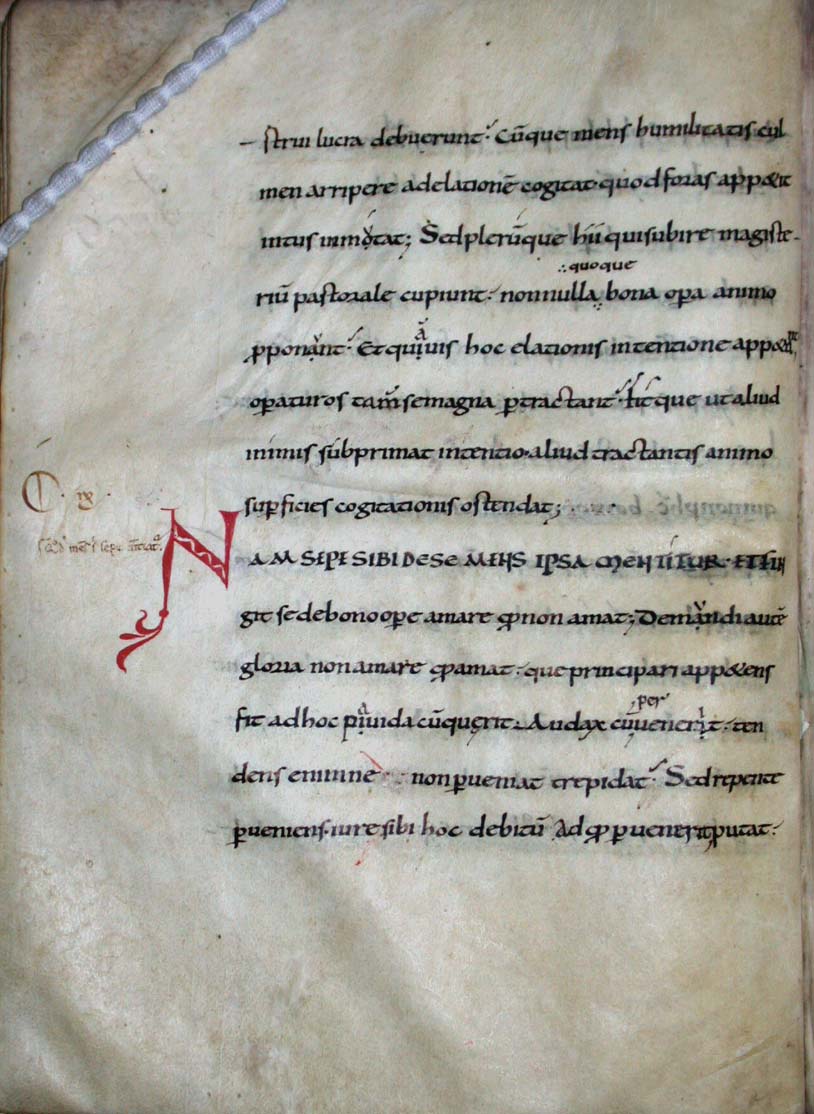 strui lucra debuerunt. Cūque mens humilitatis cul
men arripere ad elationē cogitat. quod foras appetit
intus inmutat; Sed plerūque hii qui subire magiste-
quoque
riū pastorale cupiunt. nonnulla bona opa animo
pponant. Et quamuis hoc elationis intentione appetant
opaturos tam se magna ptractant. fit que ut aliud
inimis subprimat intentio. aliud tractantis animo
supficies cogitationis ostendat;
C. IX.
NAM SEPE SIBI DE SE MENS IPSA MENTITUR. ET FIN
git se de bono ope amare qd non amat; De mundi autē
gloria non amare qd amat. que principari appetens
per
fit ad hoc pauida cū querit. Audax cū uenerit. ten
dens enim ne non pueniat trepidat. Sed repente
pueniens. iure sibi hoc debitū ad qd puenerit putat.